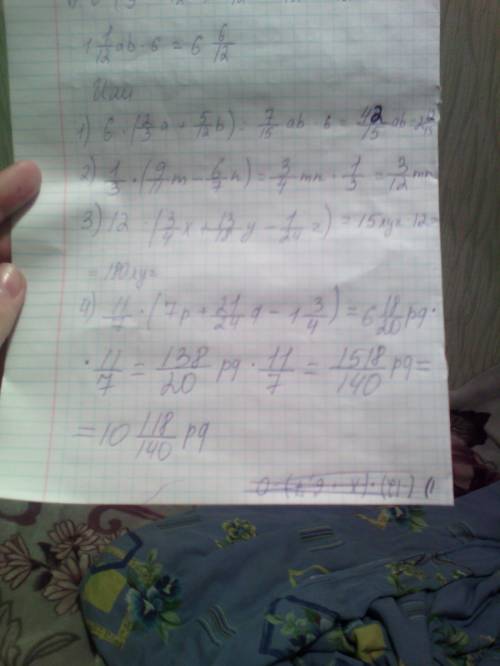 1 1/12 ab · 6 = 6 6/12
Или
1) 6 · (2/3 a + 5/12 b) = 7/15 ab · 6 = 42/15 ab = 2
2) 1/3 · (9/11 m − 6/7 n) = 3/4 mn · 1/3 = 3/12 mn
3) 12 · (3/4 x + 13/18 y − 1/24 z) = 15xyz · 12 =
= 180xyz
4) 11/7 · (7p + 21/24 q − 1 3/4) = 6 18/20 pq ·
· 11/7 = 138/20 pq · 11/7 = 1518/140 pq =
= 10 118/140 pq